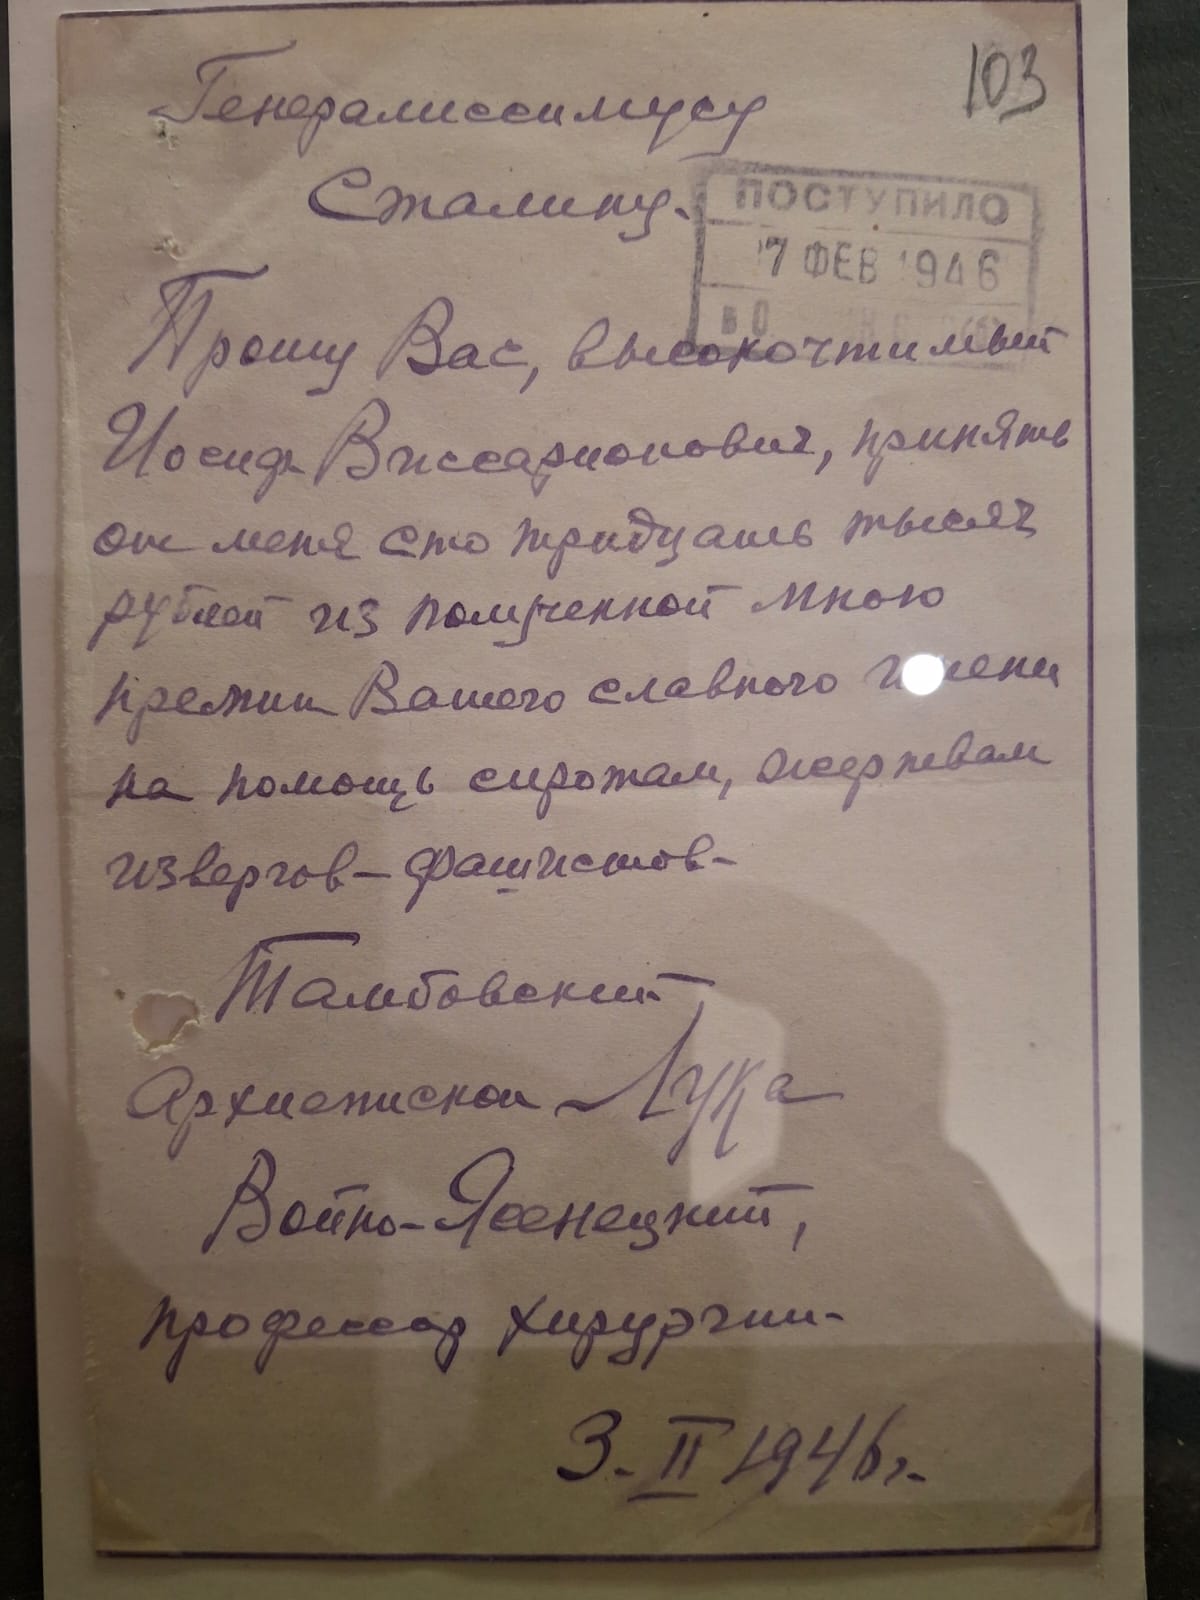 103
Генералиссимусу
Сталину.
ПОСТУПИЛО
7 ФЕВ 1946
Прошу Вас, высокочтимый
Иосиф Виссарионович, принять
от меня сто тридцать тысяч
рублей из полученной мною
премии Вашего славного имени
на помощь сиротам, жертвам
извергов-фашистов.
Тамбовский
Архиепископ Лука
Войно-Ясенецкий,
профессор хирургии.
3.II 1946г.